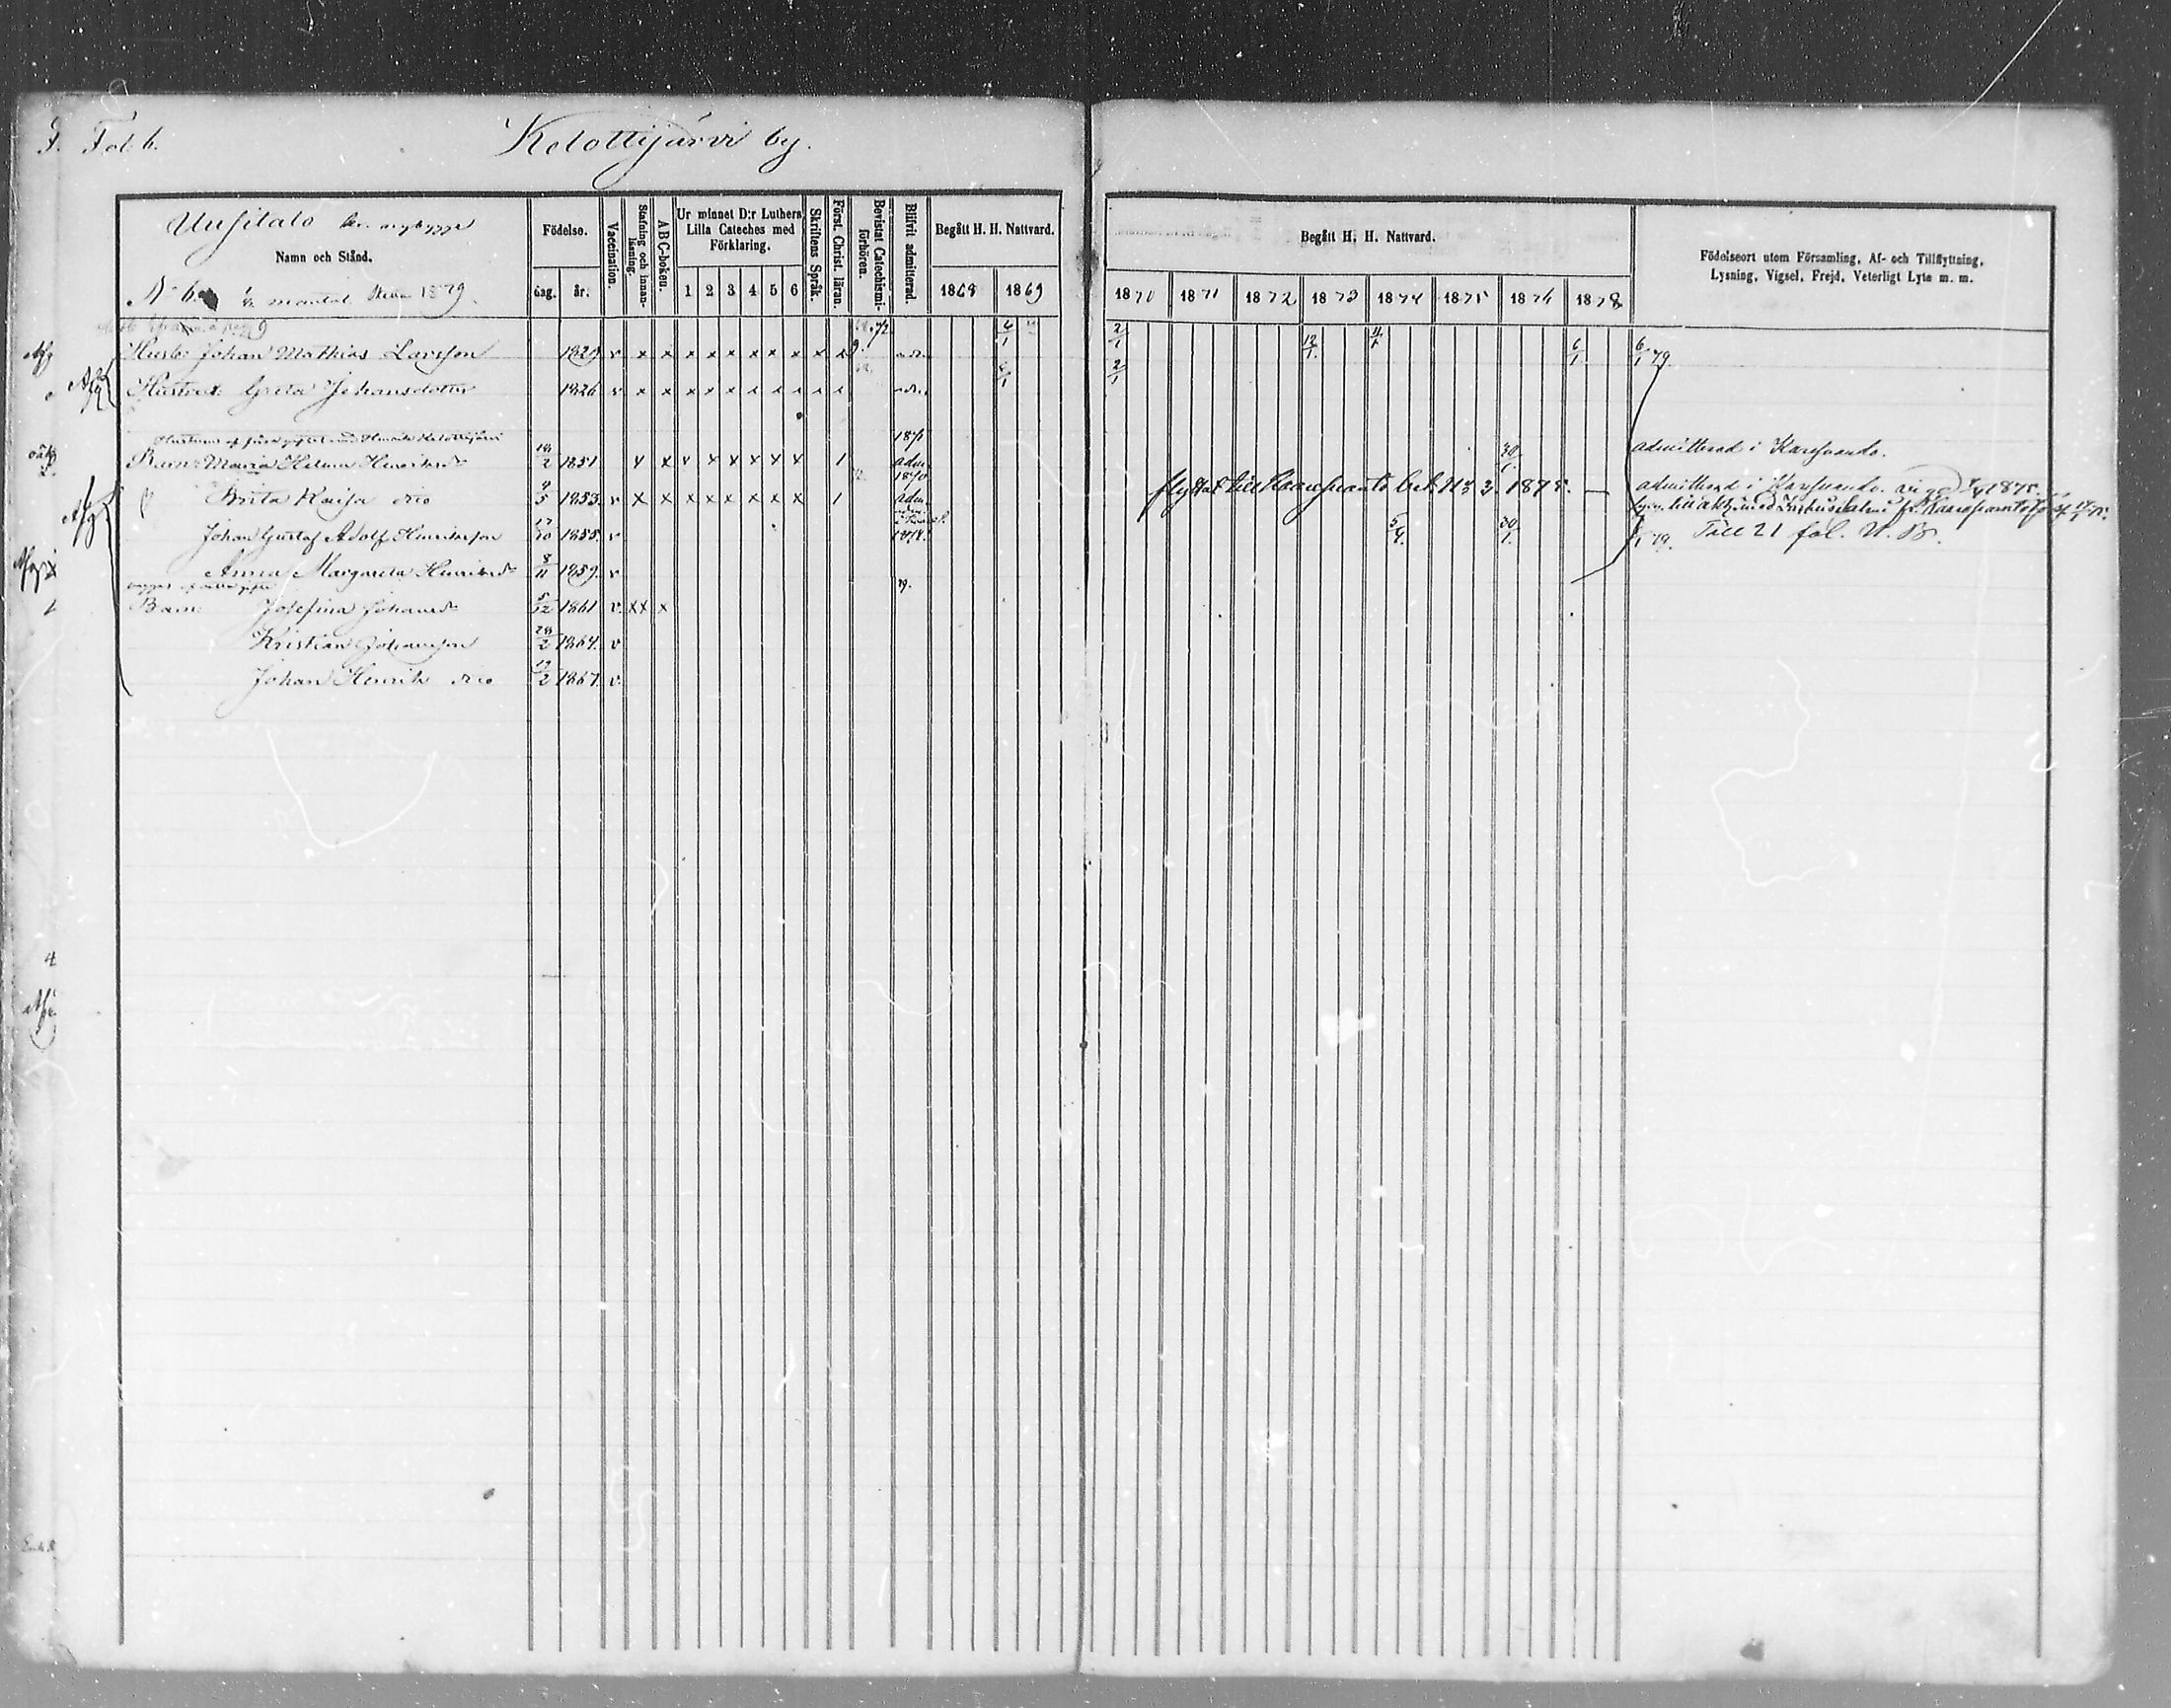 Fol. 6.
Kelottijärvi by.
Uusitalo kr. nybygge
Namn och Stånd.
N:o 6. mantal 1879.
Födelse.
dag. år.
Vaccination.
Stafning och innanläsning.
A B C-boken.
Ur minnet D:r Luthers Lilla Cateches med Förklaring.
1 2 3 4 5 6
Skriftens Språk.
Först. Christ. läran.
Bevistat Catechismiförhören.
Blifvit admitterad.
Begått H. H. Nattvard.
1868 1869
Begått H. H. Nattvard.
1870 1871 1872 1873 1874 1875 1876 1878
Födelseort utom Församling, Af- och Tillflyttning,
Lysning, Vigsel, Frejd, Veterligt Lyte m. m.
Husb: Johan Mathias Larsson 1829 v x x x x x x x x x x adm. 6/1 2/1 12/1. 11/1 6/1. 6/1 79.
Hustrun: Greta Johansdotter 1826 v x x x x x x x x x x adm. 6/1 2/1
Barn: Maria Helena Henriksdr 18/2 1851 v x v x x x x x 1 1871 adm. 30/1. admitterad i Karesuando.
Brita Kaisa dito 9/5 1853. v x x x x x x x x 1 1870 adm. flyttat till Karesuanto bet. N:3 1875. — admitterad i Karesuando.
Johan Gustaf Adolf Henriksson 17/10 1855. v 1874. 5/4. 30/1. 1/1 79. Till 21 fol. U. B.
Anna Margareta Henriksdr 8/11 1859. v
Barn: Josefina Johansdr 5/12 1861 v. x x x
Kristian Johansson 28/2 1864. v
Johan Henrik dito 13/2 1867. v.